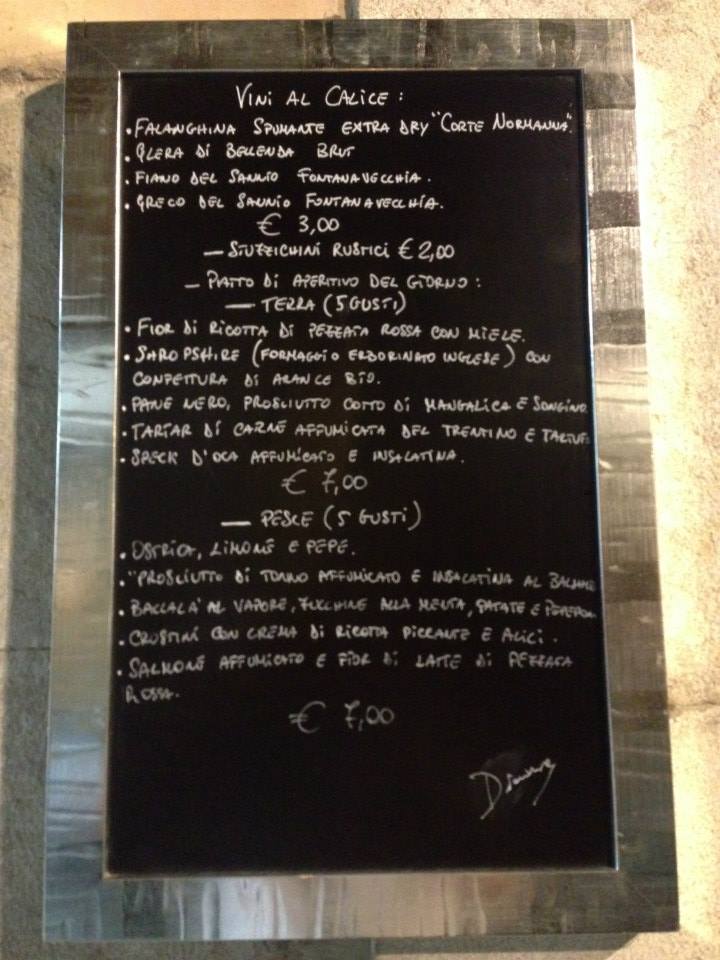 VINI AL CALICE :
• FALANGHINA SPUMANTE EXTRA DRY "CORTE NORMANNA"
• GLERA DI BELLENDA BRUT
• FIANO DEL SANNIO FONTANAVECCHIA.
• GRECO DEL SANNIO FONTANAVECCHIA.
€ 3,00
— STUZZICHINI RUSTICI € 2,00
— PIATTO DI APERITIVO DEL GIORNO :
— TERRA (5 GUSTI)
• FIOR DI RICOTTA DI PEZZATA ROSSA CON MIELE.
• SHROPSHIRE (FORMAGGIO ERBORINATO INGLESE) CON
CONFETTURA DI ARANCE BIO.
• PANE NERO, PROSCIUTTO COTTO DI MANGALICA E SONGINO
• TARTAR DI CARNE AFFUMICATA DEL TRENTINO E
• SPECK D'OCA AFFUMICATO E INSALATINA.
€ 7,00
— PESCE (5 GUSTI)
• OSTRICA, LIMONE E PEPE.
• "PROSCIUTTO DI TONNO AFFUMICATO E INSALATINA AL
• BACCALA' AL VAPORE, ZUCCHINE ALLA MENTA, PATATE E
• CROSTINI CON CREMA DI RICOTTA PICCANTE E ALICI.
• SALMONE AFFUMICATO E FIOR DI LATTE DI PEZZATA
ROSSA.
€ 7,00